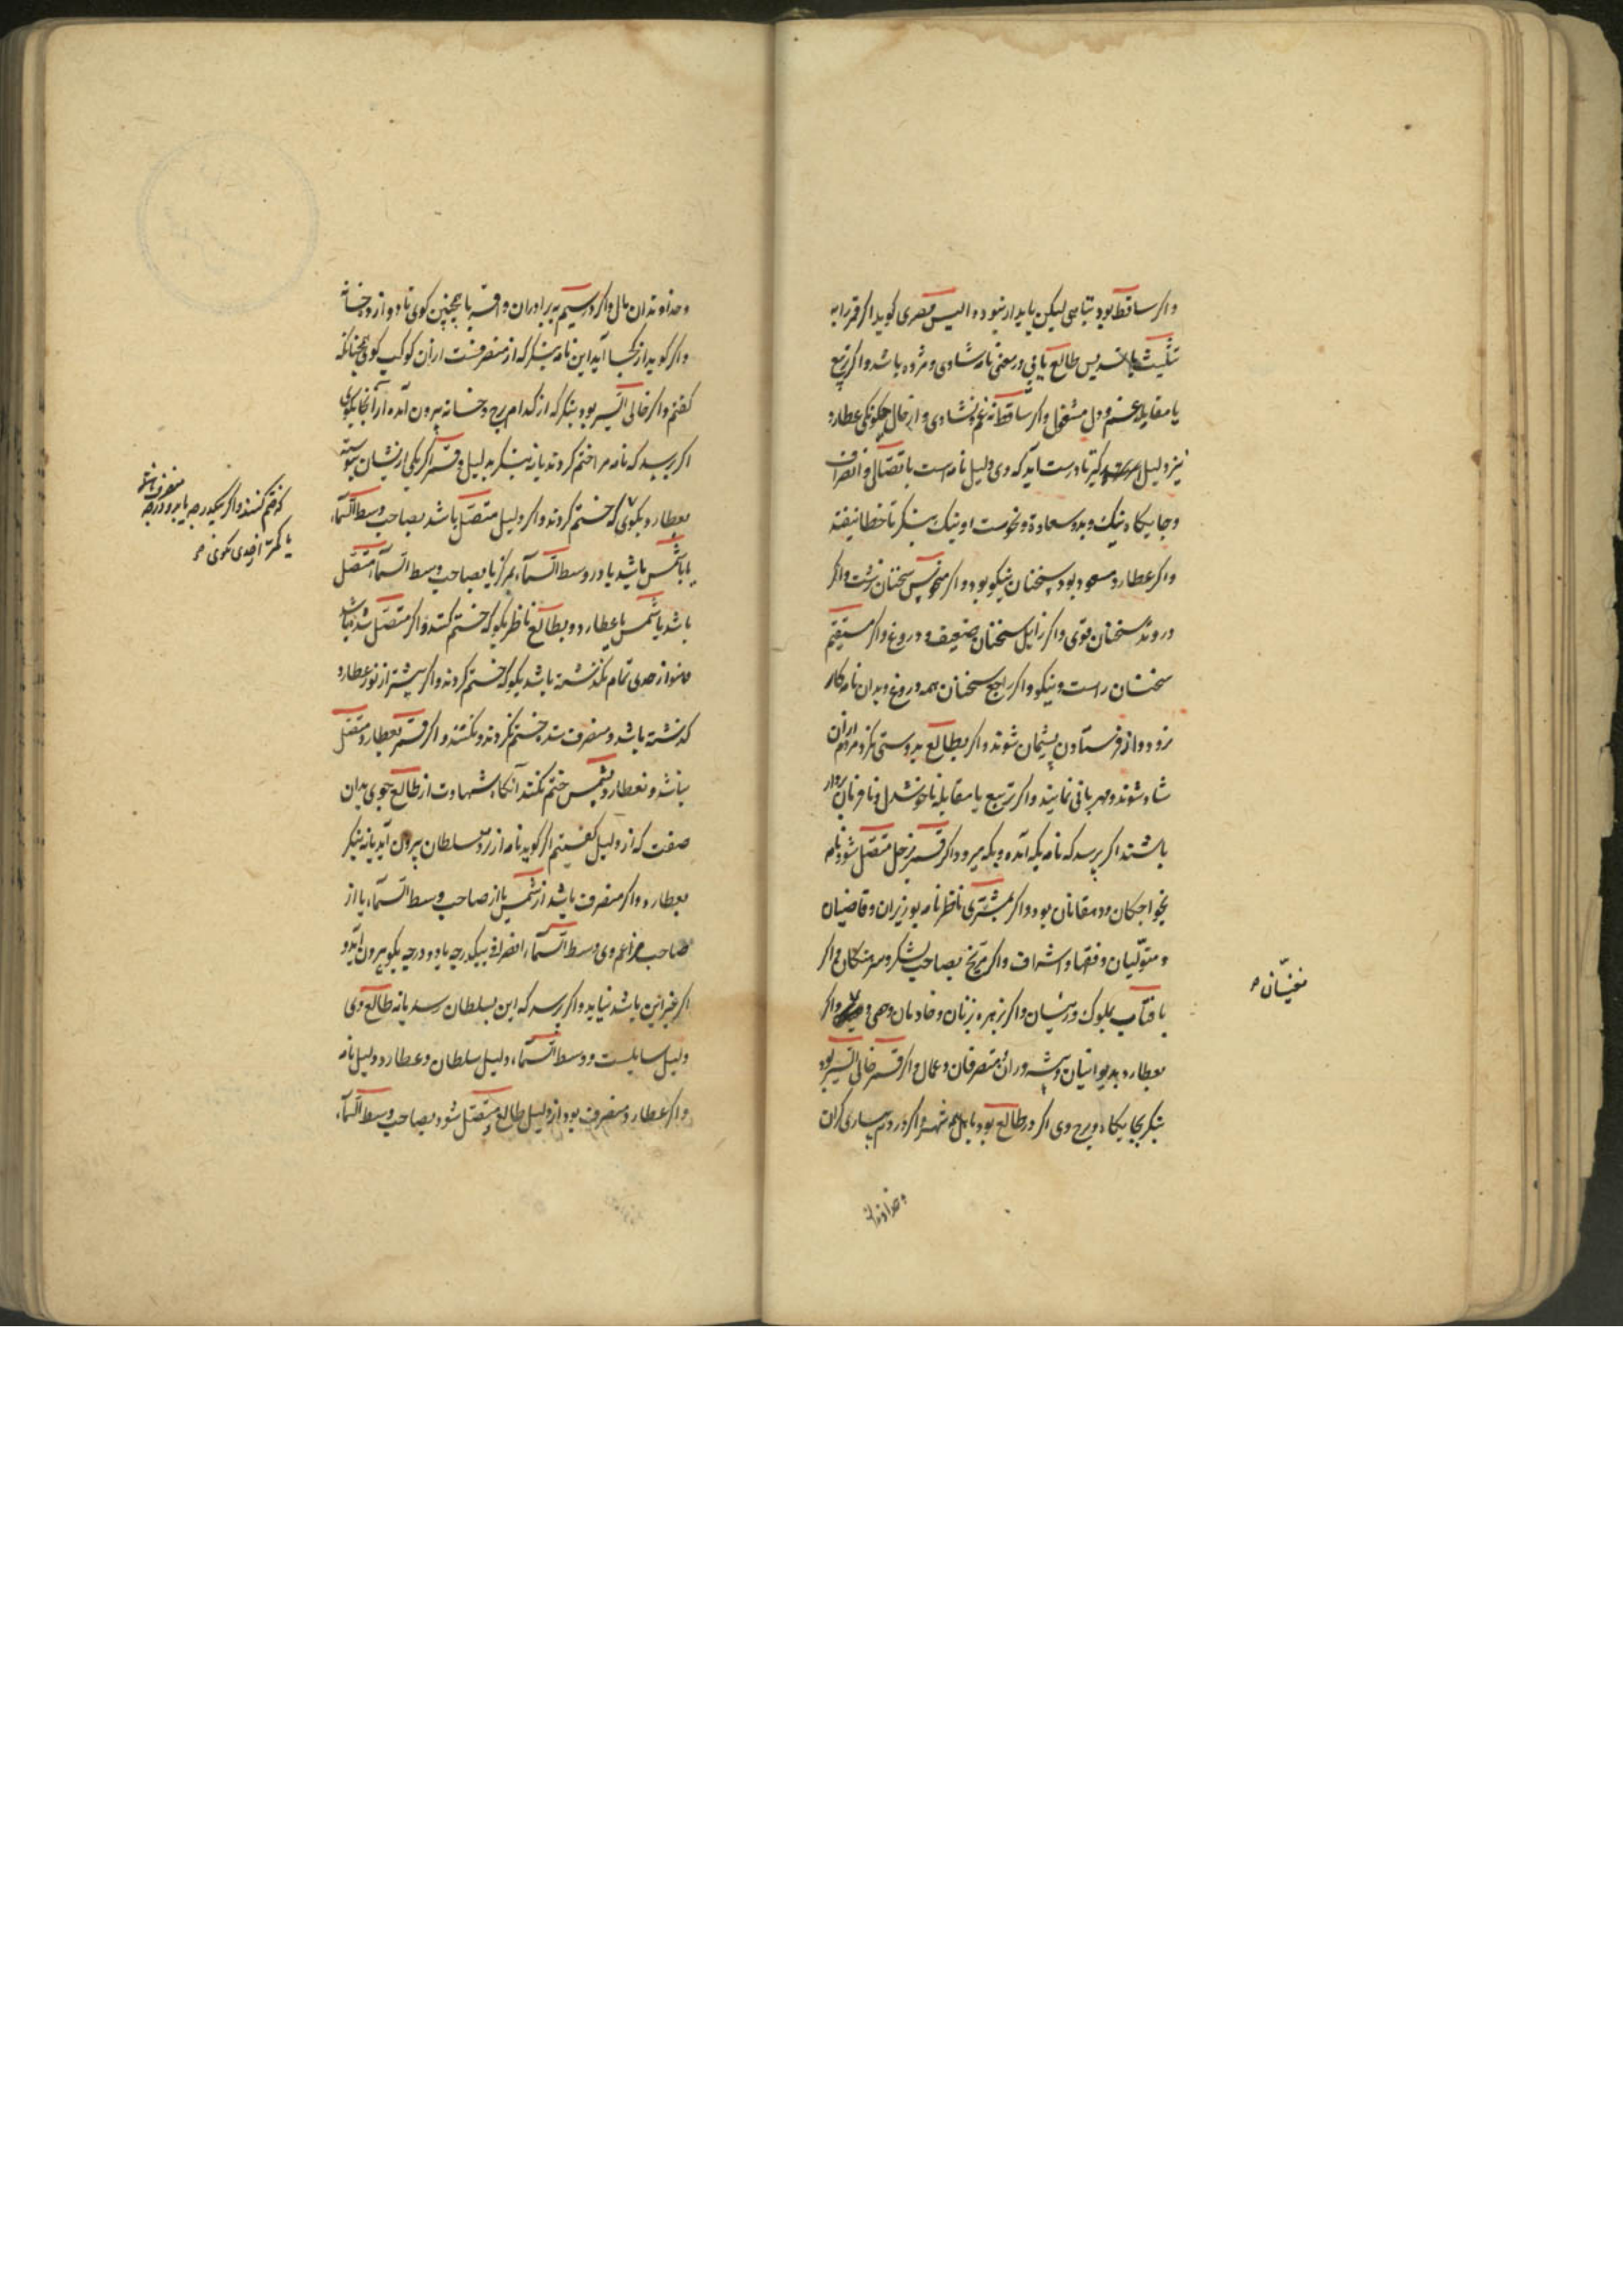 واکر ساقط بود تباهی لیکن پایدار نبود والیس مصری کوید اکر قمر را به
تثلیث یا تسدیس طالع یابی در معنی نامه شادی و مژده باشد واکر تربیع
یا مقابله غم و دل مشغول واکر ساقط نه غم و نه شادی و از حال چکونکی عطارد
نیز دلیل کیر تا درست آید که وی دلیل نامه است با تصال و انصراف
وجایکاه نیک وبد وسعادة ونحوست او نیک بنکر تا خطا نیفتد
واکر عطارد مسعود بود سخنان نیکو بود واکر منحوس سخنان زشت واکر
در وتد سخنان قوی واکر زایل سخنان ضعیف و دروغ واکر مستقیم
سخنان راست ونیکو واکر راجع سخنان همه دروغ وبدان نامه کار
نرود واز فرستادن پشیمان شوند واکر بطالع بدوستی نکرد مردم ازان
شاد شوند ومهربانی نمایند واکر تربیع یا مقابله ناخوشدل ونافرمان بردار
باشند اکر پرسد که نامه بکه آمده وبکه میرود اکر قمر بزحل متصل شود نامه
بخواجکان ودهقانان بود واکر بمشتری ناظر نامه بوزیران وقاضیان
ومتولیان وفقها واشراف واکر مریخ بصاحب لشکر وسرهنکان واکر
بافتاب بملوک ورئیسان واکر بزهره بزنان وخادمان و واکر
مغنیان صح
بعطارد بدیوانیان وپیشه وران ومتصرفان وعمال واکر قمر خالی السیر بود
بنکر بجایکاه وبرج وی اکر در طالع بود باهل شهر واکر در دوم ببیاری کران
وخداوندان
وخداوندان مال واکر در سیم به برادران واقربا همچنین کوی تا دوازده خانه
واکر کوید از کجا آید این نامه بنکر که از منصرفست از آن کوکب کوی همچنانکه
کفتم واکر خالی السیر بود بنکر که از کدام برج وخانه بیرون آمده از آنجا بکوی
اکر پرسد که نامه مرا ختم کردند یا نه بنکر بدلیل وقمر اکر یکی ازیشان پیوسته
بعطارد بکوی که ختم کردند واکر دلیل متصل باشد بصاحب وسط السماء
یا باشمس باشد یا در وسط السماء بمرکز یا بصاحب وسط السماء متصل
باشد یا شمس با عطارد وبطالع ناظر بکو که ختم کنند واکر متصل شده باشد
وهنوز از حدی تمام نکذشته باشد بکو که ختم کردند واکر بیشتر از نور عطارد
که ختم کنند واکر بیکدرجه یا بدو درجه منصرف باشد
یا کمتر از حدی بکوی صح
کذشته باشد ومنصرف شده ختم نکردند ونکنند واکر قمر بعطارد متصل
نباشد ونه عطارد بشمس ختم نکنند آنکاه شهادت از طالع جوی بدان
صفت که از دلیل کفتیم اکر کوید نامه از نزد سلطان بیرون آید یا نه بنکر
بعطارد واکر منصرف باشد از شمس یا از صاحب وسط السماء یا از
صاحب وی وسط السماء انصرافی بیکدرجه یا دو درجه بکو بیرون آید و
اکر غیر این باشد نیاید واکر پرسد که این بسلطان رسد یا نه طالع وی
دلیل سایلست ووسط السماء دلیل سلطان وعطارد دلیل نامه
واکر عطارد منصرف بود از دلیل طالع ومتصل شود بصاحب وسط السماء